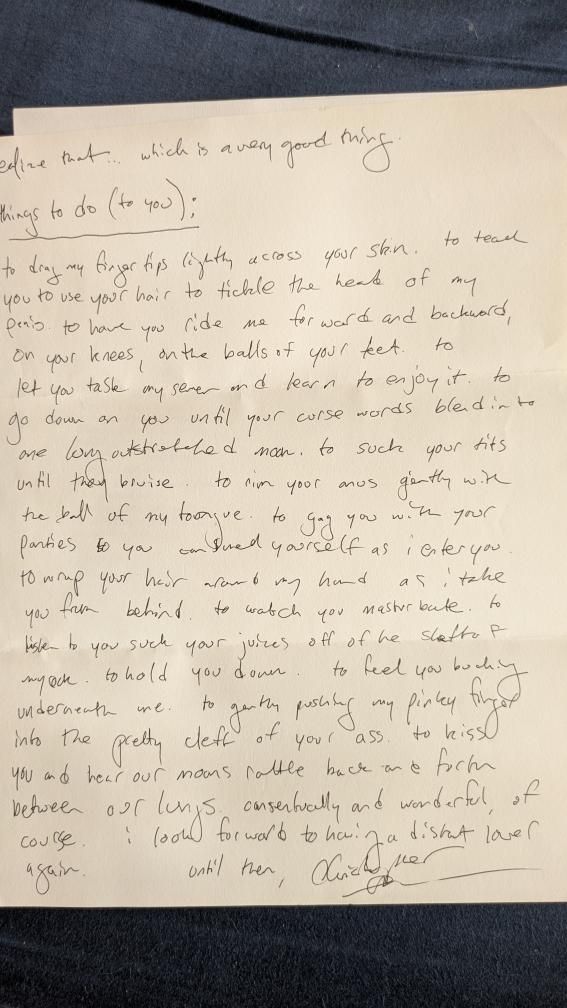 ealize that... which is a very good thing.
things to do (to you);
to drag my finger tips lightly across your skin. to teach
you to use your hair to tickle the head of my
penis. to have you ride me forward and backward,
on your knees, on the balls of your feet. to
let you taste my semen and learn to enjoy it. to
go down on you until your curse words blend into
one long outstretched moan. to suck your tits
until they bruise. to rim your anus gently with
the ball of my toungue. to gag you with your
panties so you yourself as i enter you.
to wrap your hair around my hand as i take
you from behind. to watch you masturbate. to
listen to you suck your juices off of the shaft of
my cock. to hold you down. to feel you bucking
underneath me. to gently pushing my pinky finger
into the pretty cleft of your ass. to kiss
you and hear our moans rattle back and forth
between our lungs. consentually and wonderful, of
course. i look forward to having a distant lover
again. until then,